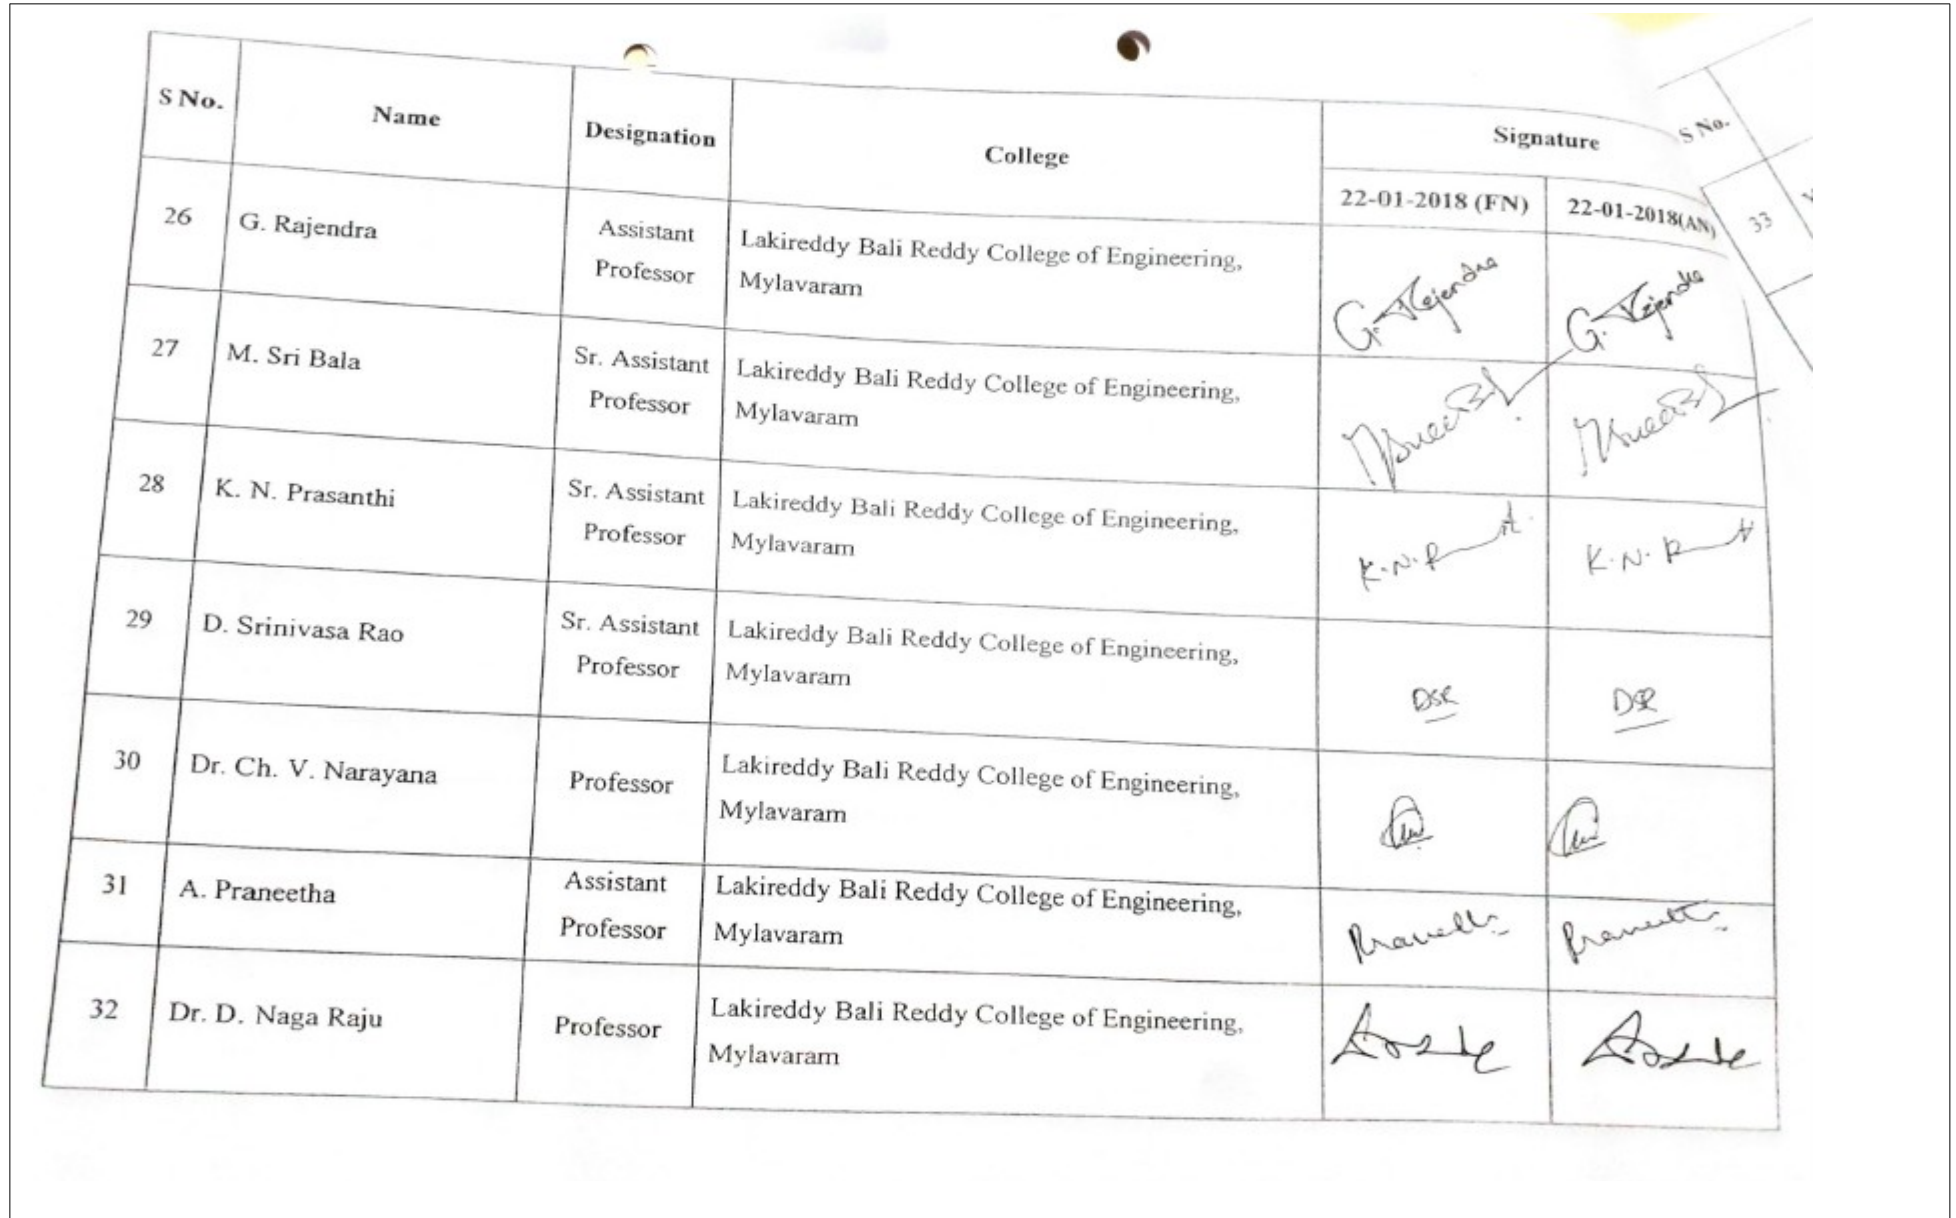 S No.
Name
Designation
College
Signature
22-01-2018 (FN)
22-01-2018(AN)
26
G. Rajendra
Assistant
Professor
Lakireddy Bali Reddy College of Engineering,
Mylavaram
G. Rajendra
G. Rajendra
27
M. Sri Bala
Sr. Assistant
Professor
Lakireddy Bali Reddy College of Engineering,
Mylavaram
28
K. N. Prasanthi
Sr. Assistant
Professor
Lakireddy Bali Reddy College of Engineering,
Mylavaram
K.N.
K.N.
29
D. Srinivasa Rao
Sr. Assistant
Professor
Lakireddy Bali Reddy College of Engineering,
Mylavaram
DSR
DSR
30
Dr. Ch. V. Narayana
Professor
Lakireddy Bali Reddy College of Engineering,
Mylavaram
31
A. Praneetha
Assistant
Professor
Lakireddy Bali Reddy College of Engineering,
Mylavaram
Praneetha
Praneetha
32
Dr. D. Naga Raju
Professor
Lakireddy Bali Reddy College of Engineering,
Mylavaram
S No.
33